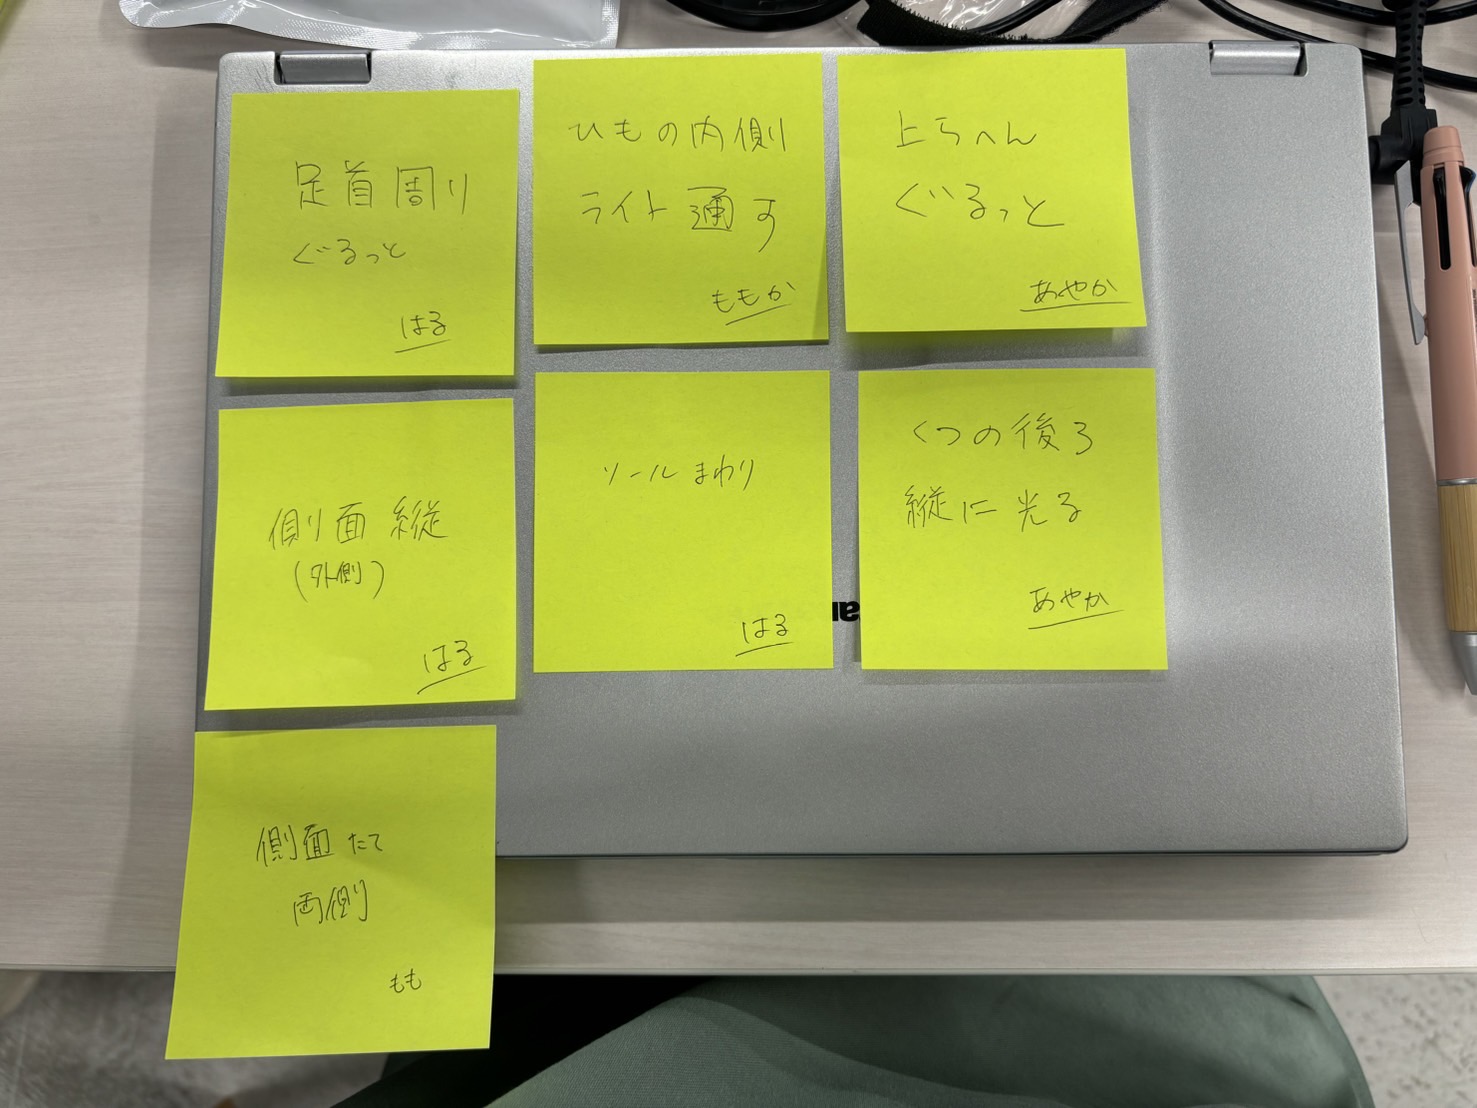 足首周り
ぐるっと
はる
ひもの内側
ライト通す
ももか
上らへん
ぐるっと
あやか
側面縦
(外側)
はる
ソールまわり
はる
くつの後ろ
縦に光る
あやか
側面たて
両側
もも